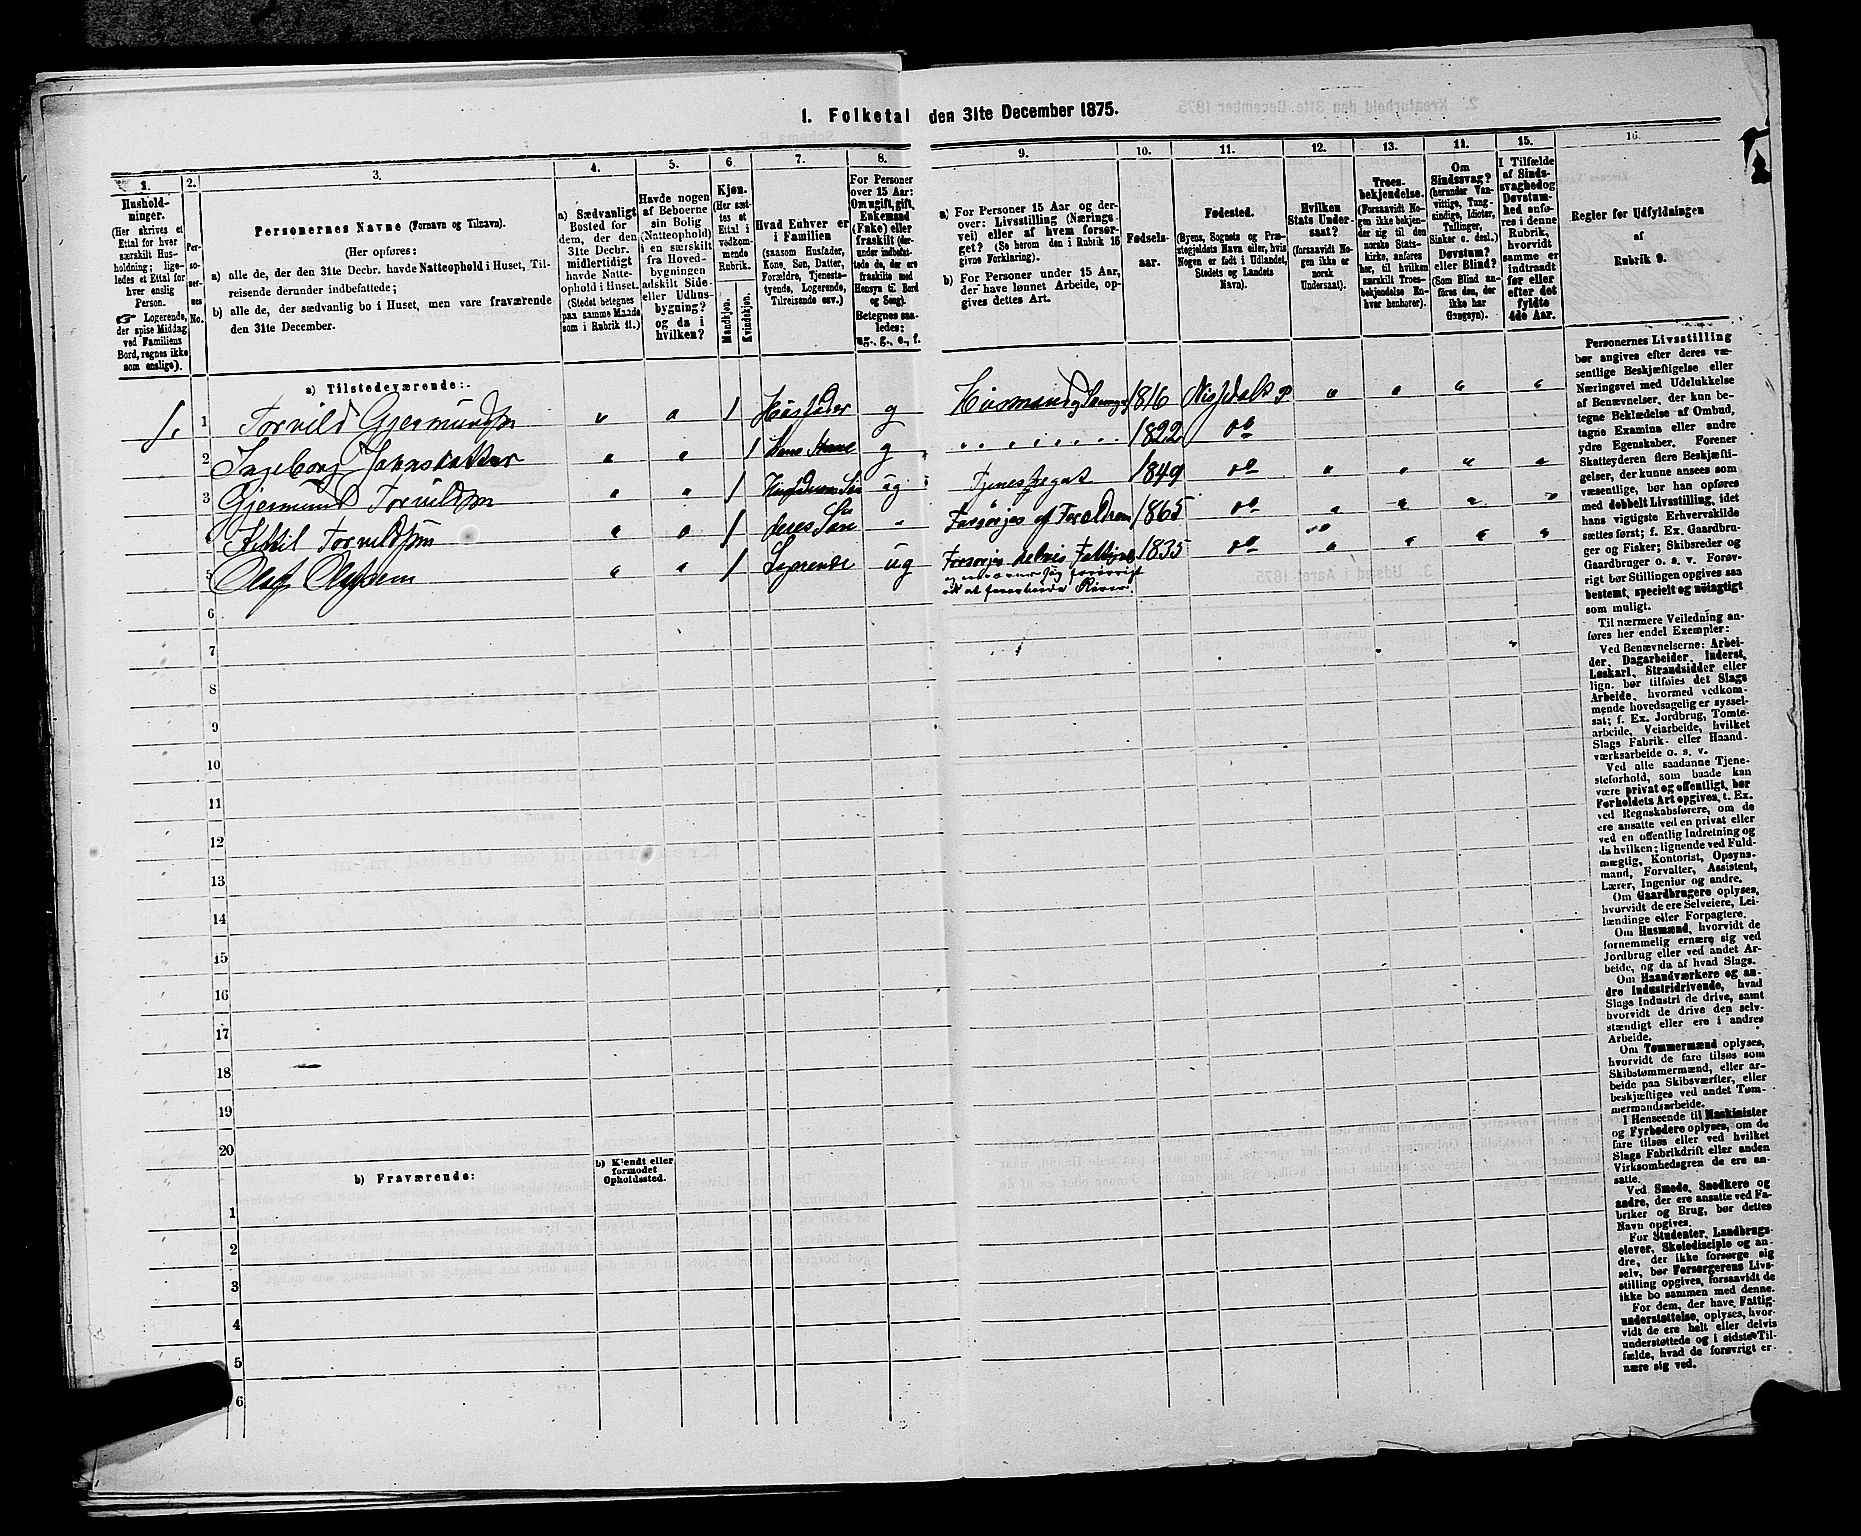 1. Folketal den 31te December 1875.
1.
Hushold-
ninger.
(Her skrives et
Ettal for hver
særskilt Hus-
holdning; lige-
ledes et Ettal for
hver enslig
Person.
Logerende,
der spise Middag
ved Familiens
Bord, regnes ikke
som enslige).
2.
Per-
so-
ner-
nes
No.
3.
Personernes Navne (Fornavn og Tilnavn).
(Her opføres:
a) alle de, der den 31te Decbr. havde Natteophold i Huset, Til-
reisende derunder indbefattede;
b) alle de, der sædvanlig bo i Huset, men vare fraværende
den 31te December.
4.
a) Sædvanligt
Bosted for
dem, der den
31te Decbr.
midlertidigt
havde Natte-
ophold i Huset.
(Stedet betegnes
paa samme Maade
som i Rubrik 11.)
5.
Havde nogen
af Beboerne
sin Bolig
(Natteophold)
i en særskilt
fra Hoved-
bygningen
adskilt Side-
eller Udhus-
bygning?
og da i
hvilken?
6.
Kjøn.
(Her sæt-
tes et
Ettal i
vedkom-
mende
Rubrik.
Mandkjøn.
Kvindekjøn.
7.
Hvad Enhver er
i Familien
(saasom Husfader,
Kone, Søn, Datter,
Forældre, Tjeneste-
tyende, Logerende,
Tilreisende osv.)
8.
For Personer
over 15 Aar:
Om ugift, gift,
Enkemand
(Enke) eller
fraskilt (der-
under indbefat-
tede de, der ere
fraskilte med
Hensyn til Bord
og Seng).
Betegnes saa-
ledes:
ug., g., e., f.
9.
a) For Personer 15 Aar og der-
over: Livsstilling (Nærings-
vei) eller af hvem forsør-
get? (Se herom den i Rubrik 16
givne Forklaring).
b) For Personer under 15 Aar,
der have lønnet Arbeide, op-
gives dettes Art.
10.
Fødsels-
aar.
11.
Fødested.
(Byens, Sognets og Præ-
stegjeldets Navn eller, hvis
Nogen er født i Udlandet,
Stedets og Landets
Navn).
12.
Hvilken
Stats Under-
saat?
(forsaavidt No-
gen ikke er
norsk
Undersaat).
13.
Troes-
bekjendelse.
(Forsaavidt No-
gen ikke bekjen-
der sig til den
norske Stats-
kirke, anføres
her, til hvilken
særskilt Troes-
bekjendelse En-
hver henhører).
14.
Om
Sindssvag?
(herunder Van-
vittige, Tung-
sindige, Idioter,
Tullinger,
Sinker o. desl.)
Døvstum?
eller Blind?
(Som Blind an-
føres den, der
ikke har
Gangsyn).
15.
I Tilfælde
af Sinds-
svaghed og
Døvstum-
hed anfø-
res i denne
Rubrik,
hvorvidt
samme er
indtraadt
før eller
efter det
fyldte
4de Aar.
16.
Regler for Udfyldningen
af
Rubrik 9.
a) Tilstedeværende:
1. 1 Torvild Gjermundsn " " 1 Husfader g Husmand 1816 Nissedals P " " " "
2 Ingeborg Johnsdatter " " 1 Hans Kone g " " " " " " " 1822 do
3 Gjermund Torvildsn " " 1 ug Tjenestegut 1849 do " " " "
Kittil Torvildsøn " " 1 deres Søn - Forsørjes af Foreldrene 1865 do " " " "
5 Olaf Olafsen " " 1 Logerende ug Forsørjes delvis 1835 do " " " "
6
7
8
9
10
11
12
13
14
15
16
17
18
19
20
b) Fraværende:
b) Kjendt eller
formodet
Opholdssted.
1
2
3
4
5
6
Personernes Livsstilling
bør angives efter deres væ-
sentlige Beskjæftigelse eller
Næringsvei med Udelukkelse
af Benævnelser, der kun be-
tegne Beklædelse af Ombud,
tagne Examina eller andre
ydre Egenskaber. Forener
Skatteyderen flere Beskjæfti-
gelser, der kunne ansees som
væsentlige, bør han opføres
med dobbelt Livsstilling, idet
hans vigtigste Erhvervskilde
sættes først; f. Ex. Gaardbru-
ger og Fisker; Skibsreder og
Gaardbruger o. s. v. Forøv-
rigt bør Stillingen opgives saa
bestemt, specielt og nøiagtigt
som muligt.
Til nærmere Veiledning an-
føres her endel Exempler:
Ved Benævnelserne: Arbei-
der, Dagarbeider, Inderst,
Løskarl, Strandsidder eller
lign. bør tilføies det Slags
Arbeide, hvormed vedkom-
mende hovedsagelig er syssel-
sat; f. Ex. Jordbrug, Tomte-
arbeide, Veiarbeide, hvilket
Slags Fabrik- eller Haand-
værksarbeide o. s. v.
Ved alle saadanne Tjene-
steforhold, som baade kan
være privat og offentligt, bør
Forholdets Art opgives, t. Ex.
ved Regnskabsførere, om de
ere ansatte ved en privat eller
ved en offentlig Indretning og
da hvilken; lignende ved Fuld-
mægtig, Kontorist, Opsyns-
mand, Forvalter, Assistent,
Lærer, Ingeniør og andre.
Om Gaardbrugere oplyses,
hvorvidt de ere Selveiere, Lei-
lændinge eller Forpagtere.
Om Husmænd, hvorvidt de
fornemmelig ernære sig ved
Jordbrug eller ved andet Ar-
beide, og da af hvad Slags.
Om Haandværkere og an-
dre Industridrivende, hvad
Slags Industri de drive, samt
hvorvidt de drive den selv-
stændigt eller ere i andres
Arbeide.
Om Tømmermænd oplyses,
hvorvidt de fare tilsøs som
Skibstømmermænd, eller ar-
beide paa Skibsværfter, eller
beskjæftiges ved andet Tøm-
mermandsarbeide.
I Henseende til Maskinister
og Fyrbødere oplyses, om de
fare tilsøs eller ved hvilket
Slags Fabrikdrift eller anden
Virksomhedsgren de ere an-
satte.
Ved Smede, Snedkere og
andre, der ere ansatte ved Fa-
briker og Brug, bør dettes
Navn opgives.
For Studenter, Landbrugs-
elever, Skoledisciple og an-
dre, der ikke forsørge sig
selv, bør Forsørgerens Livs-
stilling opgives, forsaavidt de
ikke bo sammen med denne.
For dem, der have Fattig-
understøttelse, oplyses, hvor-
vidt de ere helt eller delvis
understøttede og i sidste Til-
fælde, hvad de forøvrigt er-
nære sig ved.